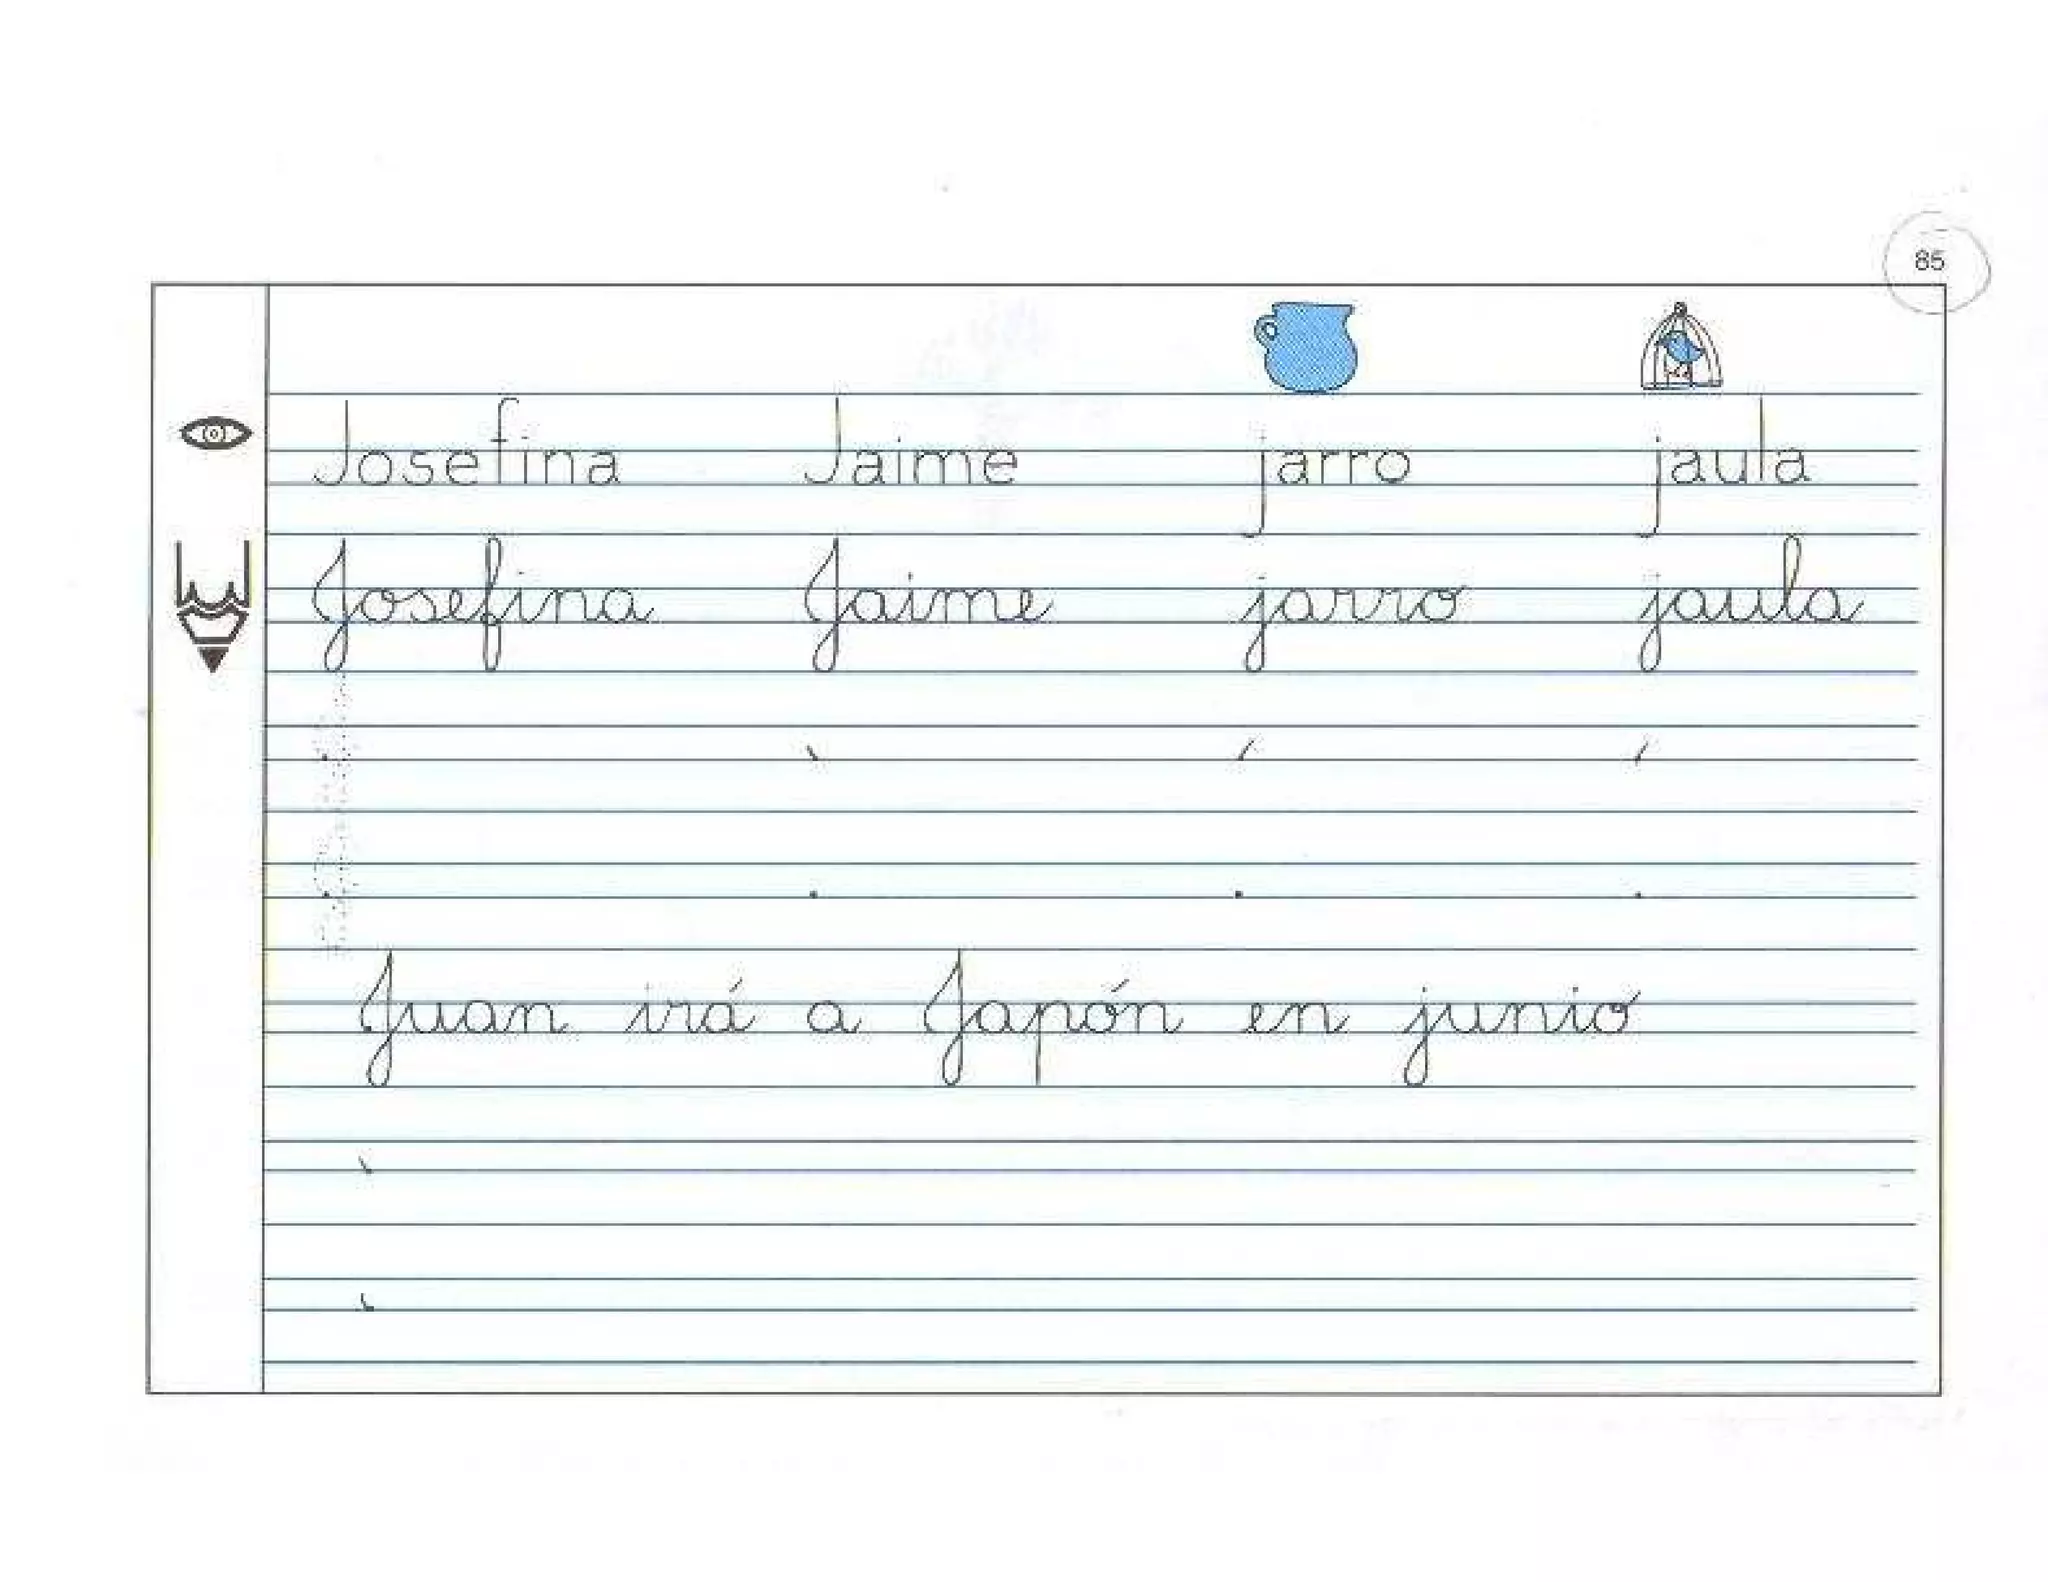 85
Josefina Jaime jarro jaula
Josefina Jaime jarro jaula
Juan irá a Japón en junio